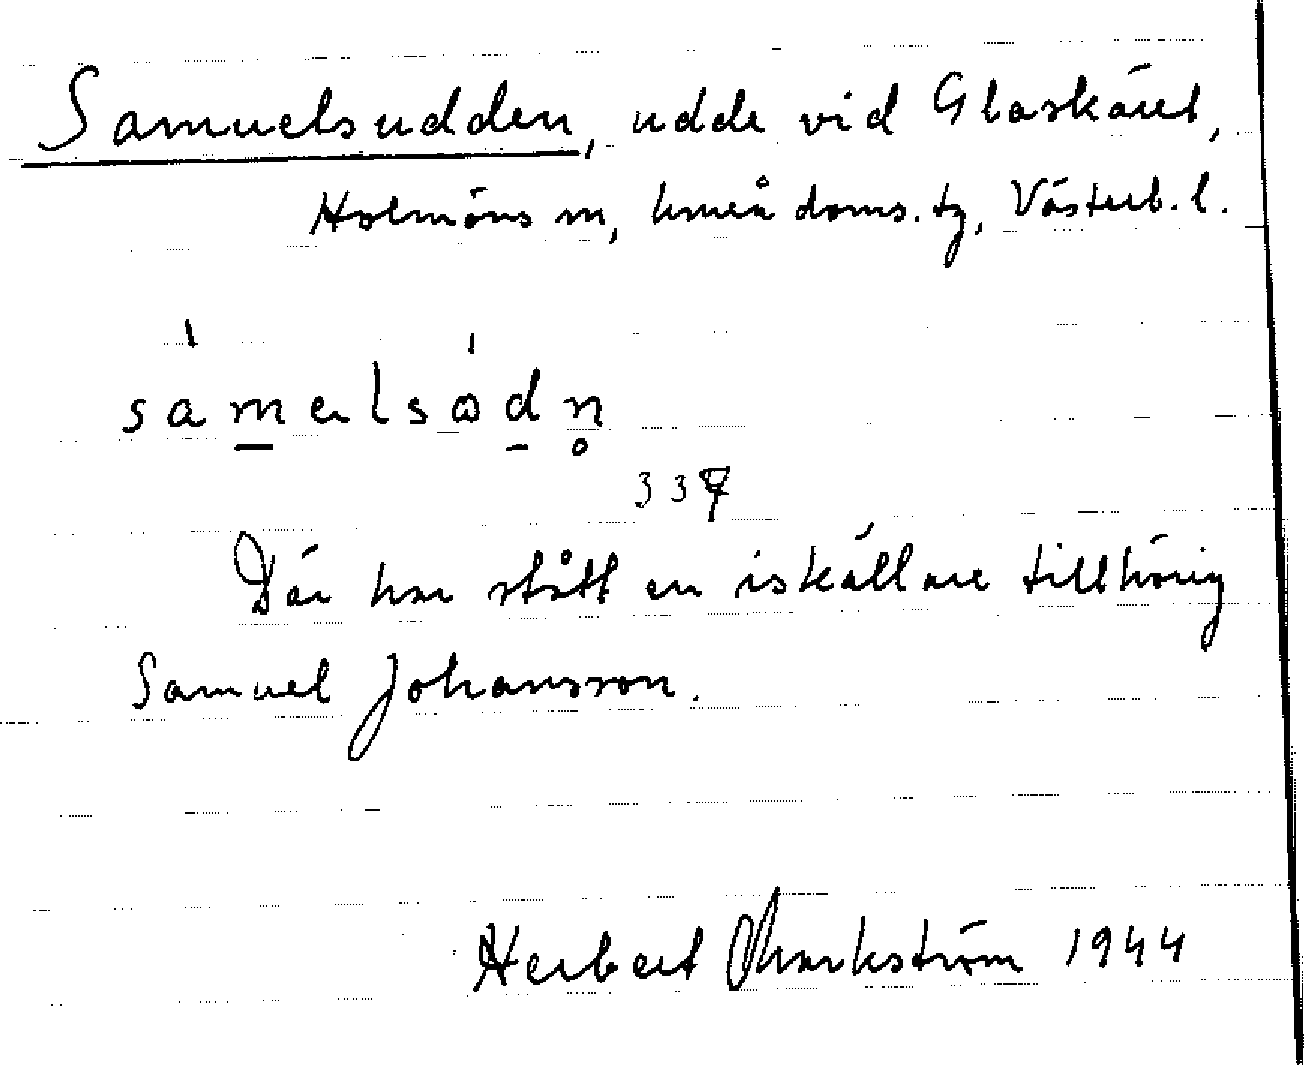 Samuelsudden, udde vid Glaskäret,
Holmöns sn, Umeå doms. tg, Västerb. l.
337
Där har stått en iskällare tillhörig
Samuel Johansson.
Herbert Markström 1944